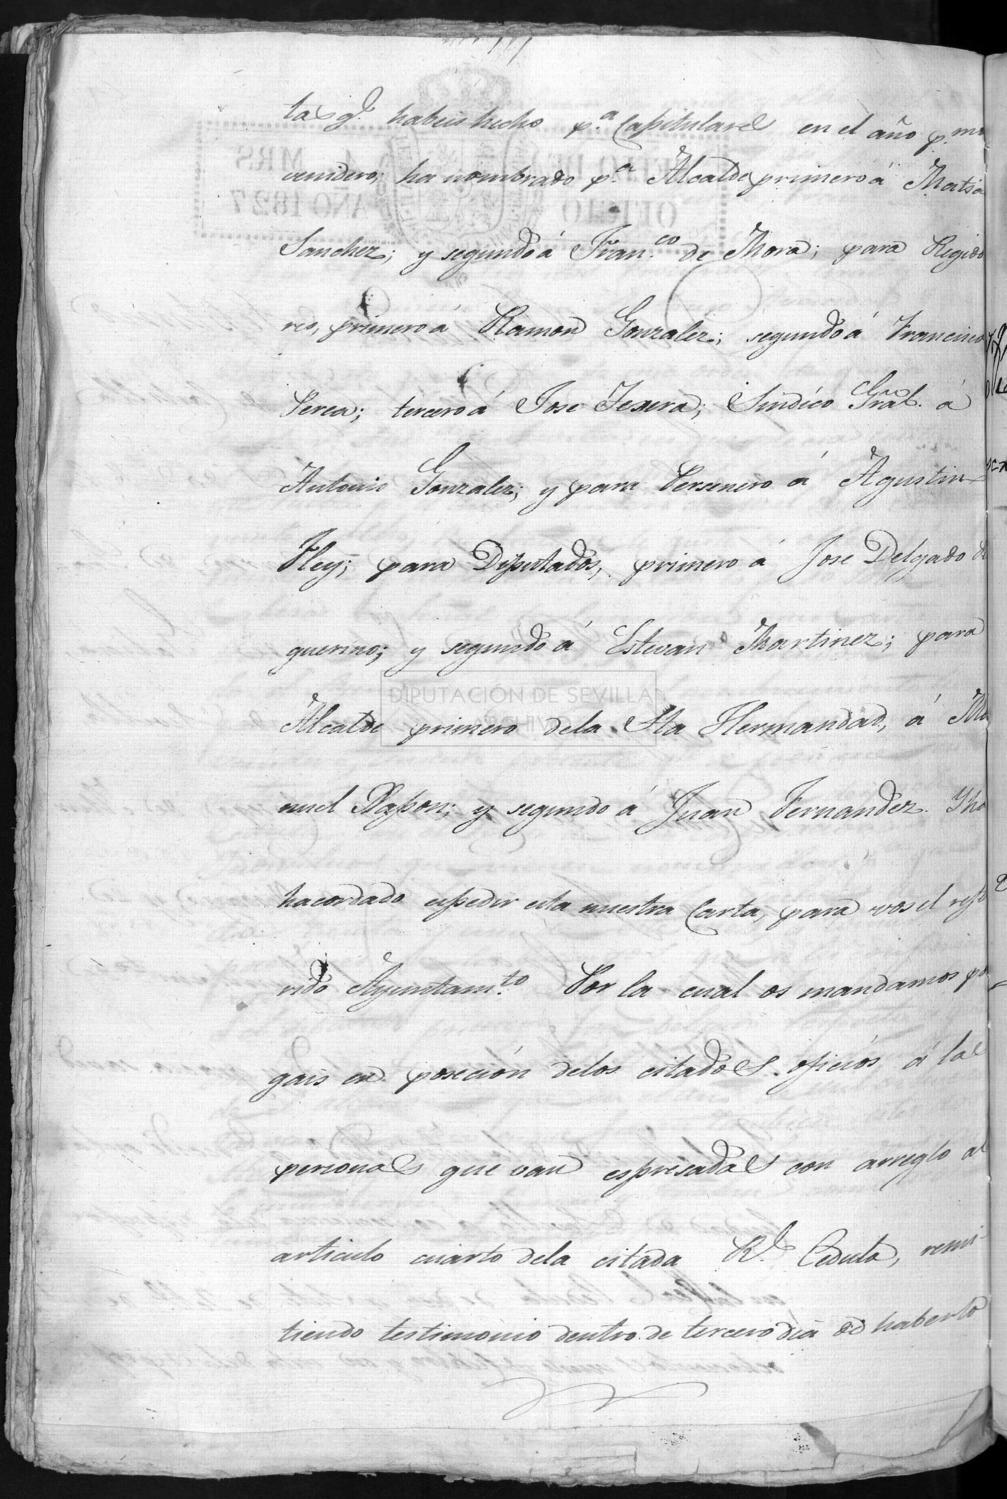 tas qe. habeis hecho pa. Capitulares en el año pmo
venidero; ha nombrado pa. Alcalde primero á Matia
Sanchez; y segundo á Franco. de Mora; para Regido
res, primero á Ramon Gonzalez; segundo á Francisco
Perea; tercero á Jose Texera; Sindico Gral. á
Antonio Gonzalez; y para Personero á Agustin
Fley; para Diputados, primero á Jose Delgado
guerino; y segundo á Estevan Martinez; para
Alcalde primero dela Sta Hermandad, á Ma
nuel Papon; y segundo á Juan Fernandez. Y ha
hacordado espedir esta nuestra Carta, para vos el refe
rido Ayuntamto. Por la cual os mandamos pon
gais en posecion delos citados oficios á las
personas que van espresadas con arreglo al
articulo cuarto dela citada Rl. Cedula, remi-
tiendo testimonio dentro de tercero dia de haberlo
DIPUTACIÓN DE SEVILLA
ARCHIVO
MRS
OFICIO
AÑO 1827